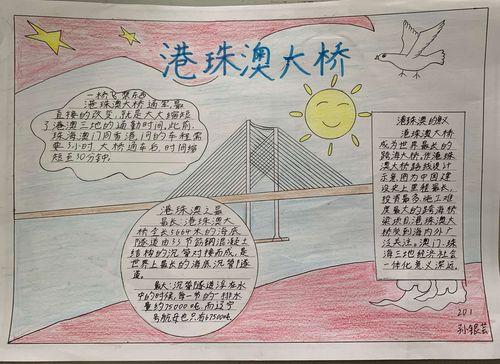 港珠澳大桥
一桥飞架东西
港珠澳大桥通车最
直接的改变,就是大大缩短
了港澳三地的通勤时间,此前,
珠海澳门同香港间的车程需
要3小时,大桥通车后,时间缩
短至30分钟.
港珠澳之最
最长:港珠澳大
桥全长5664米的海底
隧道由33节筋钢混凝土
结构的沉管对接而成,是
世界上最长的海底沉管隧
道。
最大:沉管隧道浮在水
中的时候,每一节的排水
量约75000吨,而辽宁
号航母也只有67500吨
港珠澳的意义
港珠澳大桥
成为世界最长的
跨海大桥,伶港珠
澳大桥路线设计
示意,图为中国建
设史上里程最长,
投资最多,施工难
度最大的跨海桥
梁项目,港珠澳大
桥受到海内外广
泛关注。澳门、珠
海三地经济社会
一体化意义深远。
201
孙银芸